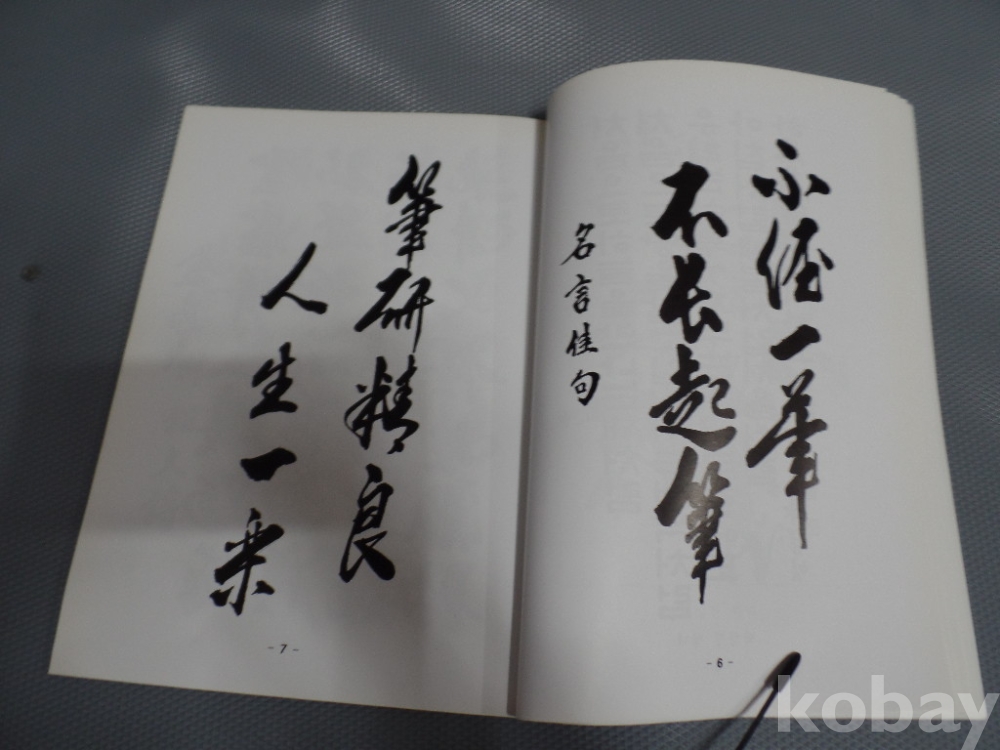 不經一筆
不長起筆
名言佳句
- 6 -
筆研精良
人生一樂
- 7 -
kobay